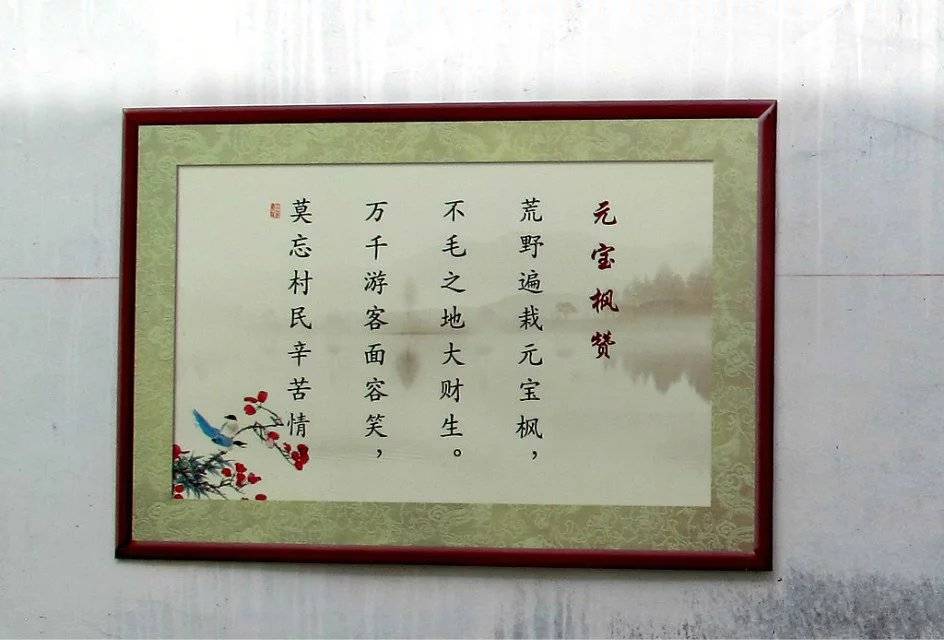 元宝枫赞
荒野遍栽元宝枫，
不毛之地大财生。
万千游客面容笑，
莫忘村民辛苦情